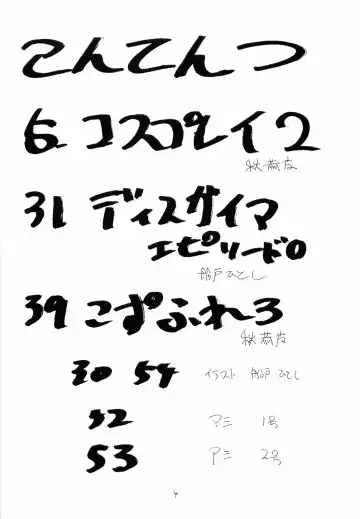 こんてんつ
6 コスプレイ2
秋恭友
31 ディスガイア
エピソード0
船戸ひとし
39 こすぷれ3
秋恭友
30 54 イラスト 船戸ひとし
52 マミ 1号
53 アミ 2号
4